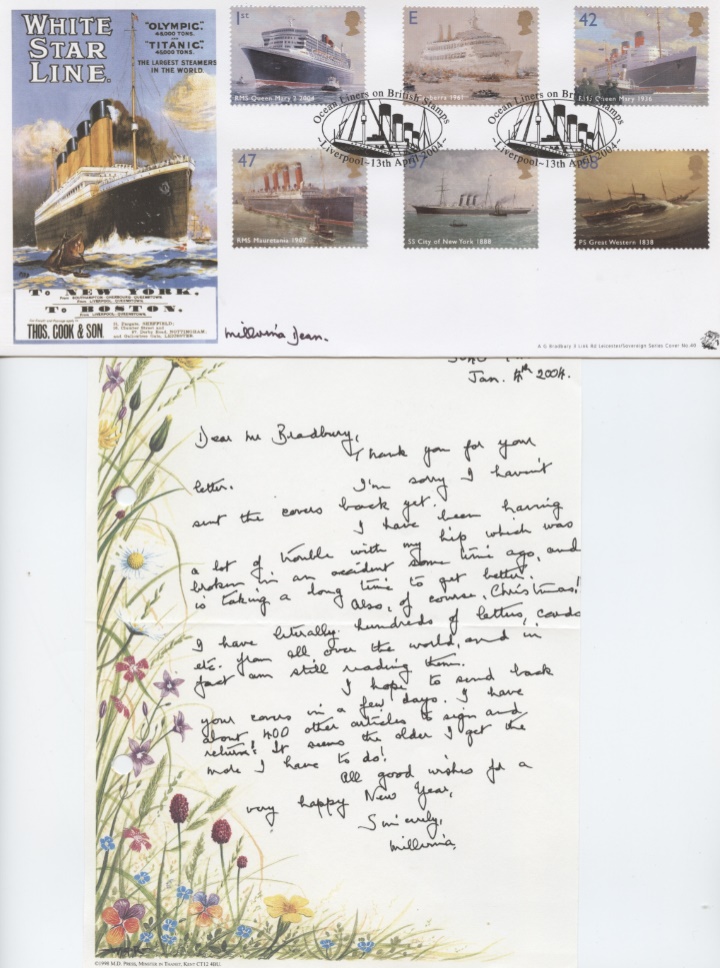 WHITE
STAR
LINE.
"OLYMPIC."
45,000 TONS.
AND
"TITANIC."
45,000 TONS.
THE LARGEST STEAMERS
IN THE WORLD
TO NEW YORK.
FROM SOUTHAMPTON CHERBOURG QUEENSTOWN.
FROM LIVERPOOL QUEENSTOWN.
TO BOSTON.
FROM LIVERPOOL QUEENSTOWN.
THOS. COOK & SON
1st
RMS Queen Mary 2 2004
E
Canberra 1961
42
RMS Queen Mary 1936
Ocean Liners on British Stamps
~Liverpool~13th April 2004~
Ocean Liners on British Stamps
~Liverpool~13th April 2004~
47
RMS Mauretania 1907
57
SS City of New York 1888
68
PS Great Western 1838
Millvina Dean.
A G Bradbury 3 Link Rd Leicester/Sovereign Series Cover No.
Jan. 4th 2004.
Dear Mr Bradbury,
Thank you for your
letter. I'm sorry I haven't
sent the covers back yet.
I have been having
a lot of trouble with my hip which was
broken in an accident some time ago, and
is taking a long time to get better.
Also, of course, Christmas!
I have literally hundreds of letters, cards
etc. from all over the world, and in
fact am still reading them.
I hope to send back
your covers in a few days. I have
about 400 other articles to sign and
return! It seems the older I get the
more I have to do!
All good wishes for a
very happy New Year,
Sincerely,
Millvina.
M.D. PRESS, MINSTER IN THANET, KENT CT12 4HU.